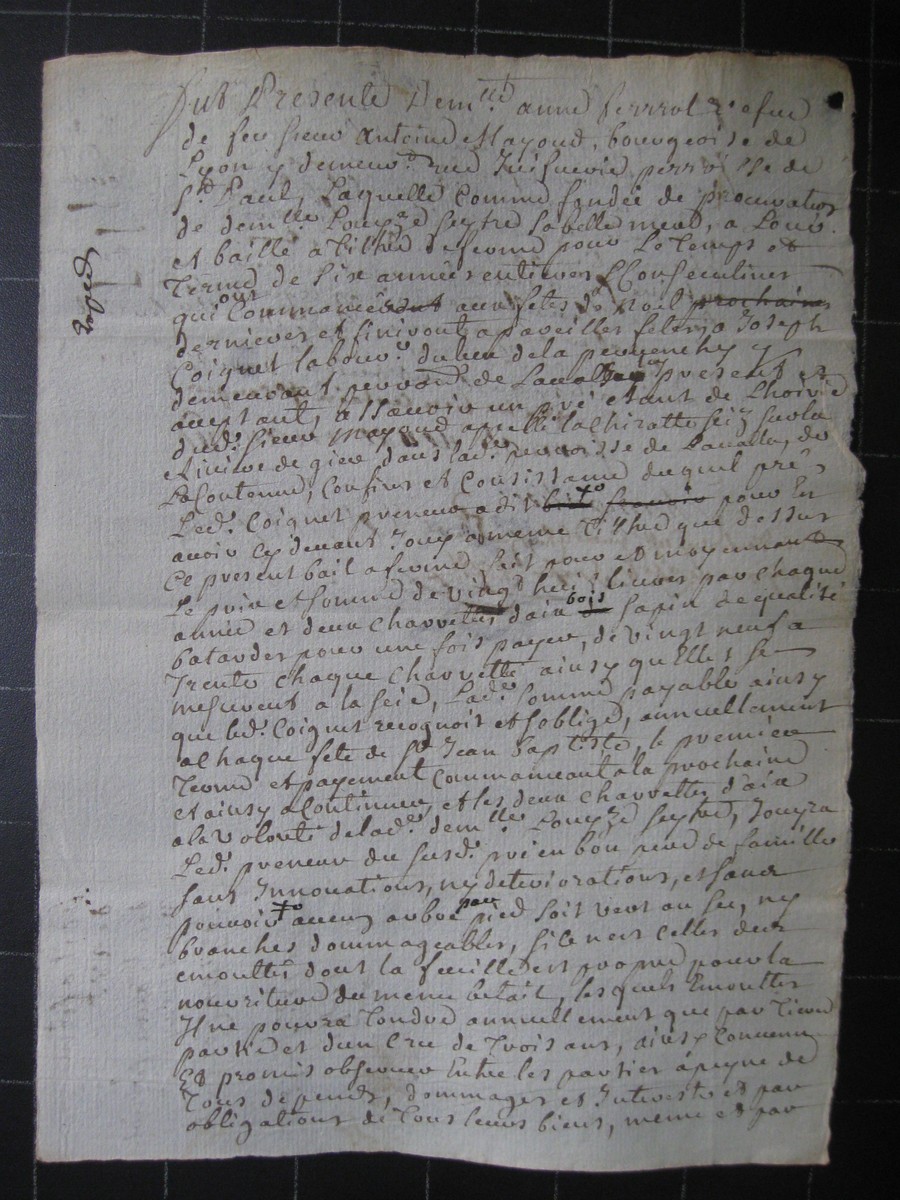 Fut Presente Dem.lle anne ferrrol
de feu sieur Antoine Mayoud, bourgeoise de
Lyon y demeur.te rue Juifverie perroisse de
S.t Paul, Laquelle comme fondée de procuration
de dem.lle Louyze Seytre sa belle mere, a Loué
et baillé à tiltre de ferme pour Le temps et
Terme de Six années entieres & Consecutives
qui ont Commancé aux fetes de Noel prochaines
dernieres et finiront a pareilles fetes, a Joseph
Coignet labour.r du lieu de la pervenchy y
demeurant perroisse de present et
acceptant, assavoir un pré etant de L'hoirie
dud. sieur Mayoud apellé la Chiratte Scize sur la
Riviere de gier dans lad. perroisse de Lavalla, de
La Contenue, Confins et Consistance duquel pré
Led. Coignet preneur a dit pour En
avoir cy devant Jouy a meme Tilthre que dessus
Ce present bail a ferme fait pour et moyennant
Le prix et somme de vingt huit livres par chaque
année et deux charrettes d'aix bois sapin de qualité
batardes pour une fois payer, de vingt neuf a
Trente chaque charrette ainsy qu'Elles se
mesurent a la Seie, Lad. somme payable ainsy
que led. Coignet recognoit et s'oblige, annuellement
a Chaque fete de S.t Jean Baptiste, le premier
Terme et payement Commanceant a la prochaine
et ainsy a Continuer, et les deux charrettes d'aix
a la volonté de lad. dem.lle Louyze Seytre, Jouyra
Led. preneur du susd. pré en bon pere de famille
sans Innovations, ny deteriorations, et sans
pouvoir aucun arbre par pied soit vert ou sec, ny
branches dommageables, si ce n'est celles des
emouttes dont la feuille est propre pour la
nourriture du menu betail, lesquels Emouttes
Il ne pourra Tondre annuellement que par Tiers
partie et d'un Cru de Trois ans, ainsy Convenu
Et promis observer Entre les parties à peyne de
Tous depends, dommages et Interests et par
obligations de Tous leurs biens, meme et par